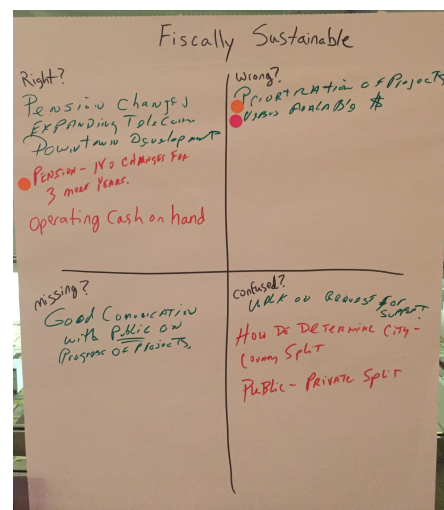 Fiscally Sustainable
Right?
Pension Changes
Expanding Telecom
Downtown Development
Pension - No Changes for
3 more years.
Operating Cash on hand
Wrong?
of Projects
$
missing?
Good
with Public on
Progress of Projects,
confused?
on Request for
How Do Determine City-
County Split
Public - Private Split